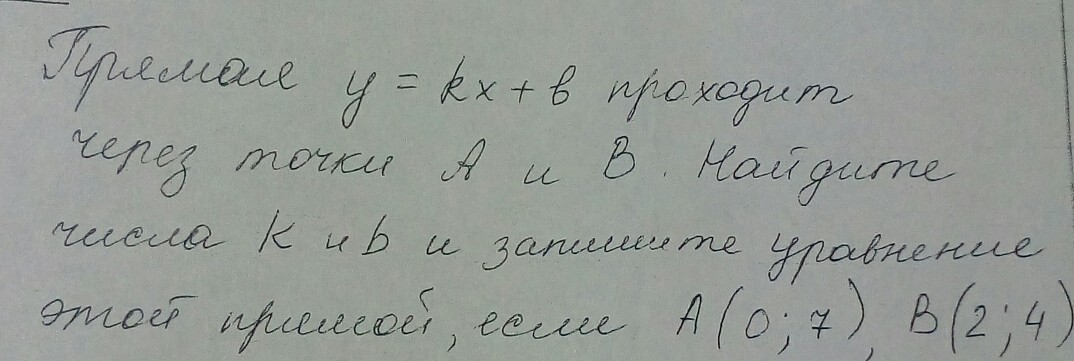 Прямая y = kx + b проходит
через точки A и B. Найдите
числа k и b и запишите уравнение
этой прямой, если A(0;7), B(2;4)